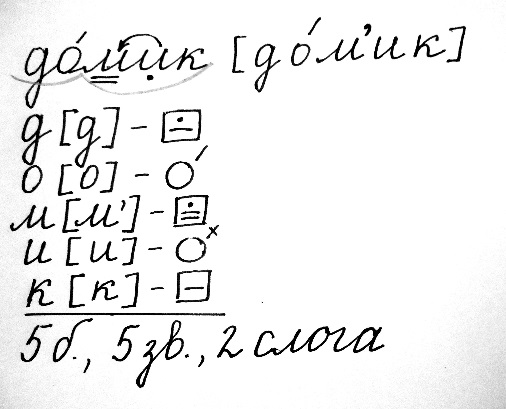 до́мик [до́м'ик]
д [д] –
о [о] –
м [м'] –
и [и] –
к [к] –
5 б., 5 зв., 2 слога